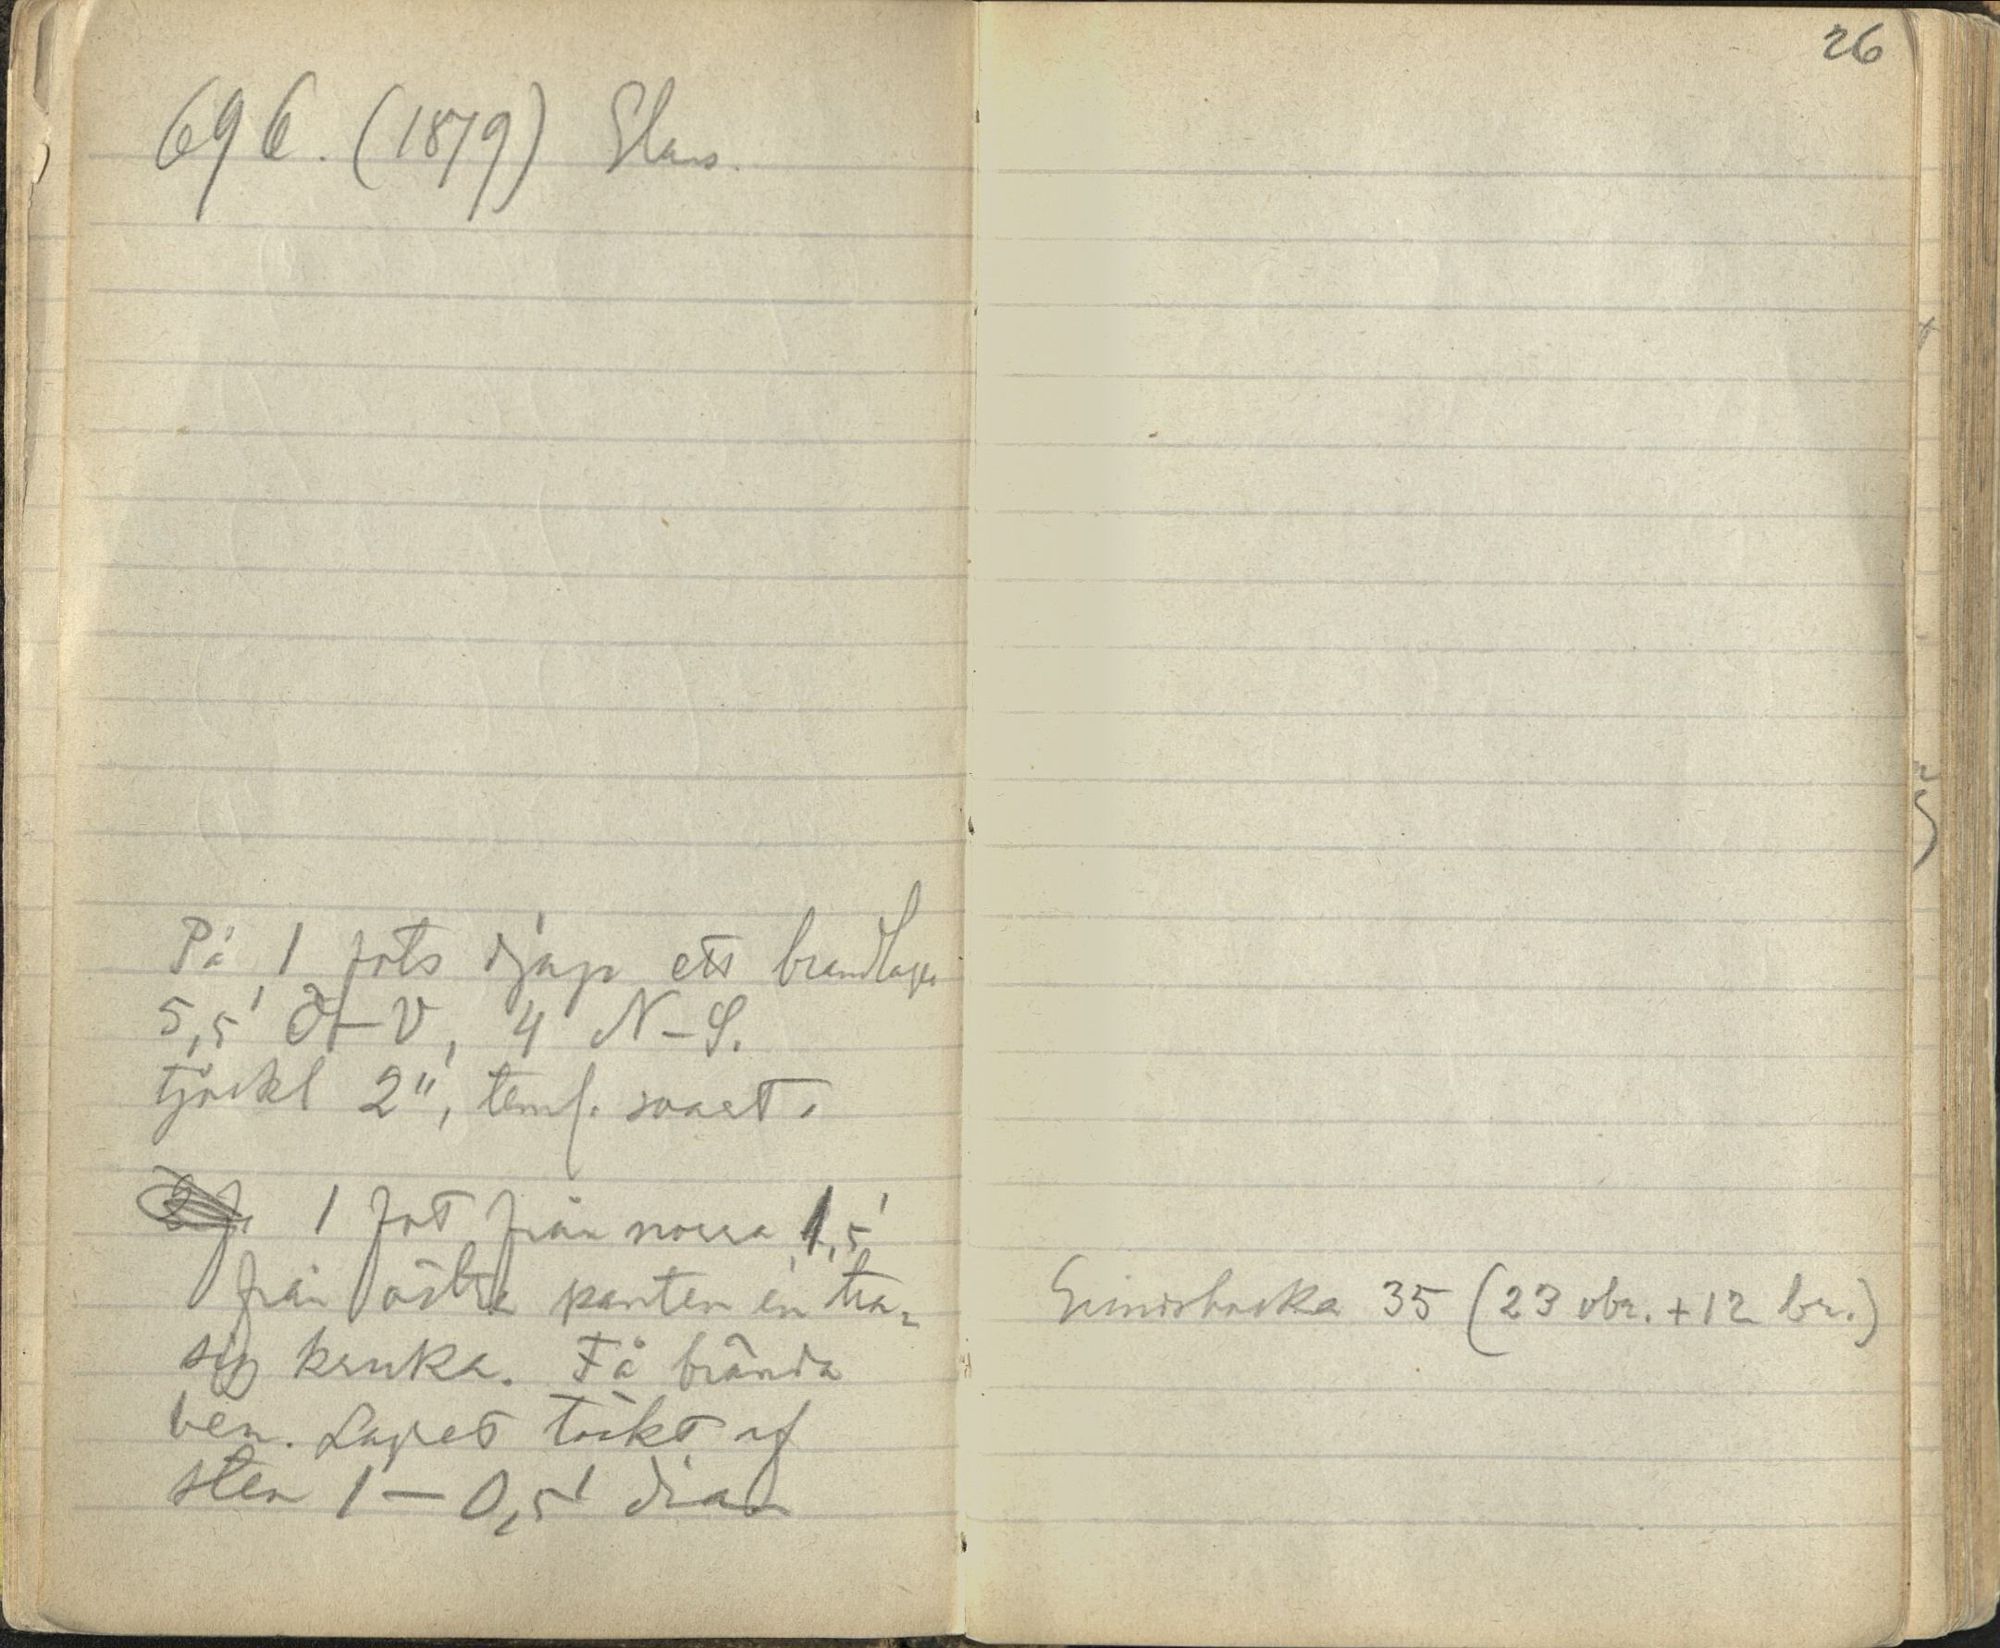 696. (1879)
På 1 fots djup ett brandlager
5,5' Ö–V, 4' N–S.
tjockl 2", teml. svart.
1 fot från norra 1,5'
från östra kanten en tra-
sig kruka. Få brända
ben. Lagret täckt af
sten 1 – 0,5' diam
26
35 (23 obr. + 12 br.)